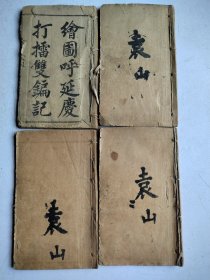 繪圖呼延慶
打擂雙鞭記
袁山
袁山
袁山